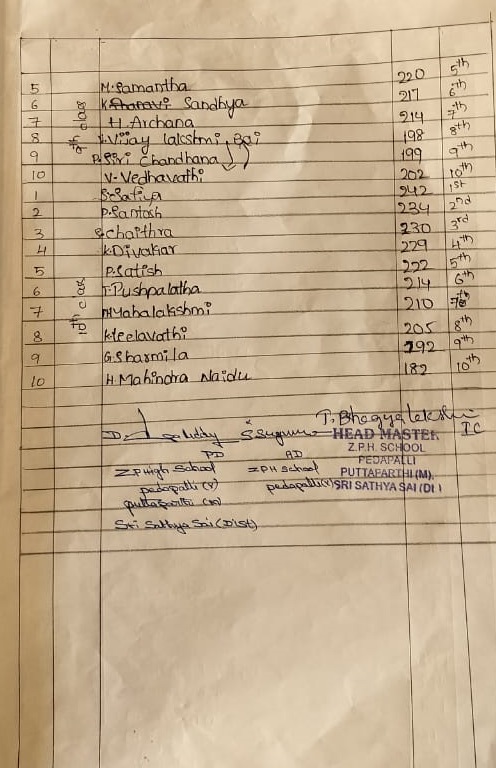 5 M. Samantha 220 5th
6 K. Sandhya 217 6th
7 H. Archana 214 7th
8 V. Vijay lakshmi Bai 198 8th
9 P. Siri Chandhana 199 9th
10 V. Vedhavathi 202 10th
1 S. Safiya 242 1st
2 P. Santosh 234 2nd
3 S. Chaithra 230 3rd
4 K. Divakar 229 4th
5 P. Satish 222 5th
6 T. Pushpalatha 214 6th
7 M Mahalakshmi 210 7th
8 K. Leelavathi 205 8th
9 G. Sharmila 192 9th
10 H Mahindra Naidu 182 10th
T. Bhagyalakshmi
IC
PD AD HEAD MASTER
Z.P High School ZPH School Z.P.H. SCHOOL
pedapalli (v) pedapalli (v) PEDAPALLI
puttaparthi (M) PUTTAPARTHI (M),
Sri Sathya Sai (Dist) SRI SATHYA SAI (Dt.)